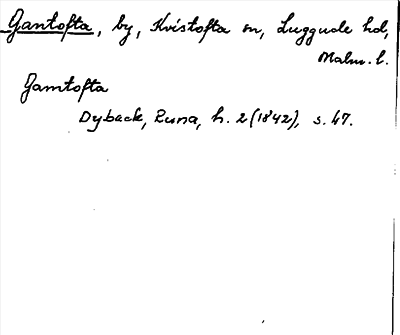 Gantofta, by, Kvistofta sn, Luggude hd,
Malm. l.
Gamtofta
Dybeck, Runa, h. 2 (1842), s. 47.